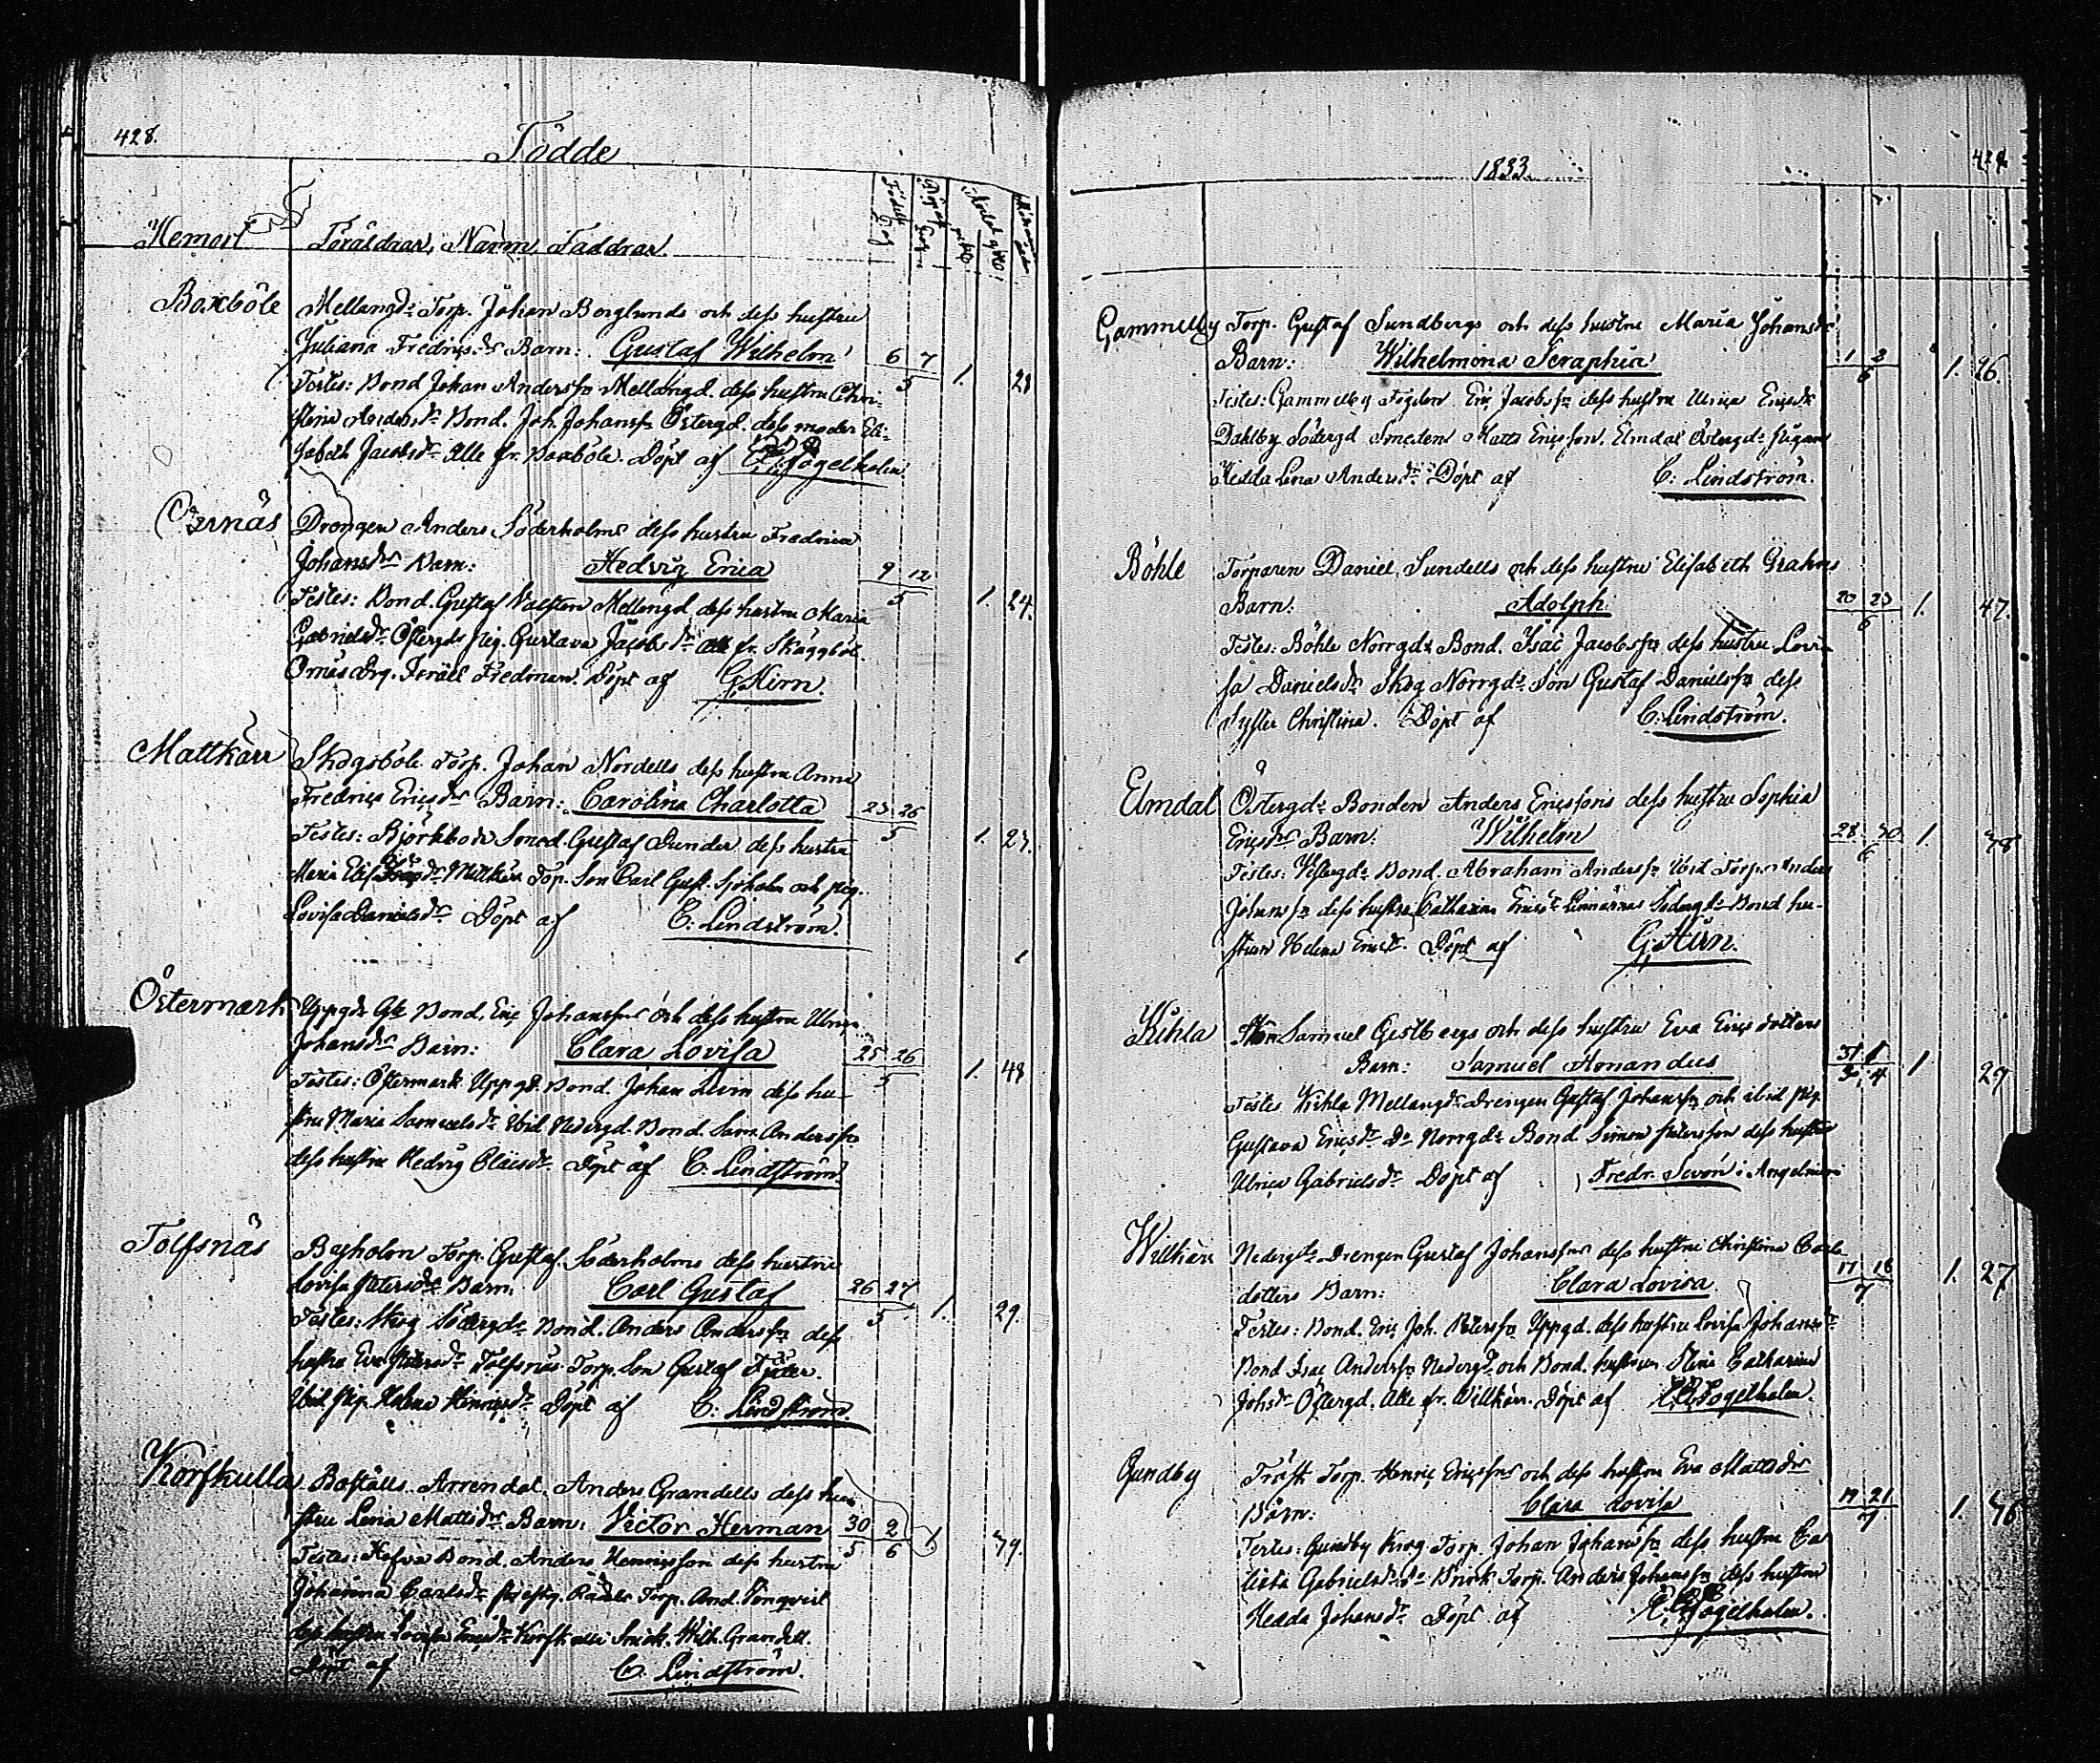 428.
Födde
Hemort
Föräldrar, Namn, Faddrar.
Födelse Dag
Boxböle
Mellangds Torp. Johan Berglunds och dess hustru
Juliana Fredricsdrs Barn: Gustaf Wilhelm 6 7
5 1. 28
Testes: Bond Johan Andersson Mellangd. dess hustru Chri-
stina Andersdr Bond. Joh. Johanss Östergd. dess moder Eli-
sabeth Jacobsdr Alle fr. Boxböle. Döpt af Fogelholm.
Drengen Anders Söderholms dess hustru Fredrica
Johansdrs Barn: Hedvig Erica 9 12
5 1. 24.
Testes: Bond. Gustaf Mellangd dess hustru Maria
Gabrielsdr Östergds Pig. Gustava Jacobsdr alle fr. Skäggböl.
Drg. Fredman. Döpt af G. Hirn.
Mattkärr
Skogsböle Torp. Johan Nordells dess hustru Anna
Fredrica Ericsdrs Barn: Carolina Charlotta 23 26
5 1. 23.
Testes: Björkboda Smed. Gustaf Dunder dess hustru
Maria Torp. Son Carl Gust. Sjöholm och pig.
Lovisa Danielsdr Döpt af C: Lindström.
Östermark
Uppgds Bond. Eric Johanssons och dess hustru Ulrica
Johansdrs Barn: Clara Lovisa 25 26
5 1. 48
Testes: Östermark Uppgd. Bond. Johan dess hu-
stru Maria Samuelsdr Ibid Nedergd. Bond. Sam. Andersson
dess hustru Hedvig Claesdr Döpt af C. Lindström.
Tolfsnäs
Byholm Torp. Gustaf Söderholms dess hustru
Lovisa Petersdrs Barn. Carl Gustaf 26 27
5 1. 29.
Testes: Skog Södergds Bond. Anders Anderss dess
hustru Eva Petersdr Tolfsnäs Torp. Son Gustaf
Ibid Pig. Helena Henricsdr Döpt af C: Lindström.
Korfkulla
Boställs Arrendat. Anders Grandells dess hu-
stru Lena Mattsdrs Barn: Victor Herman 30 2
5 6 1 39.
Testes: Bond. Anders Henricsson dess hustru
Johanna Carlsdr Torp. And. Lönqvist
dess hustru Lovisa Ericsdr Korfkulla Wilh. Grandell.
Döpt af C. Lindström.
1833.
Gammelby
Torp. Gustaf Sundbergs och dess hustru Maria Johansdr
Barn: Wilhelmina Seraphia 1 2
6 1. 26.
Testes: Gammelby Fogden Eric Jacobss dess hustru Ulrica Ericsdr
Dahlby Södergd Smeden Matts Ericsson. Elmdal Östergds Pigan
Hedda Lena Andersdr Döpt af C: Lindström.
Böhle
Torparen Daniel Sundells och dess hustru Elisabeth Grahns
Barn: Adolph 20 23
6 1. 47.
Testes: Böhle Norrgds Bond. Isac Jacobss dess hustru Lovi-
sa Danielsdr Skog Norrgds Son Gustaf Danielss dess
Syster Christina. Döpt af C. Lindström.
Elmdal
Östergds Bonden Anders Ericssons dess hustru Sophia
Ericsdrs Barn: Wilhelm 28 30
6 1. 38
Testes: Vestergds Bond. Abraham Anderss Ibid Torp. Anders
Johanss dess hustru Catharina Ericsdr Södergds Bond hu-
strun Helena Ericsdr. Döpt af G. Hirn.
Kihla
Samuel Gestbergs och dess hustru Eva Ericsdotters
Barn: Samuel Amandus 31 1
3. 4 1 29
Testes Kihla Mellangds Drengen Gustaf Johanss och ibid pig.
Gustava Ericsdr Do Norrgds Bond Simon Petersson dess hustru
Ulrica Gabrielsdr Döpt af Fredr. Sevon i Angelniemi
Willkärr
Nedergds Drengen Gustaf Johanssons dess hustru Christina Carls-
dotters Barn: Clara Lovisa 17 18
7 1. 27
Testes: Bond. Eric Joh. Peterss Uppgd. dess hustru Lovisa Johansdr
Bond Isac Anderss Nedergd och Bond. hustrun Stina Catharina
Johsdr Östergd. Alle fr. Willkärr. Döpt af Fogelholm.
Gundby
Träsk Torp. Henric Ericssons och dess hustru Eva Mattsdrs
Barn: Clara Lovisa 19 21
7 1. 46
Testes: Gundby Krog Torp. Johan Johanss dess hustru Ca-
Gabrielsdr Do Torp. Anders Johanss dess hustru
Hedda Johansdr Döpt af Fogelholm.